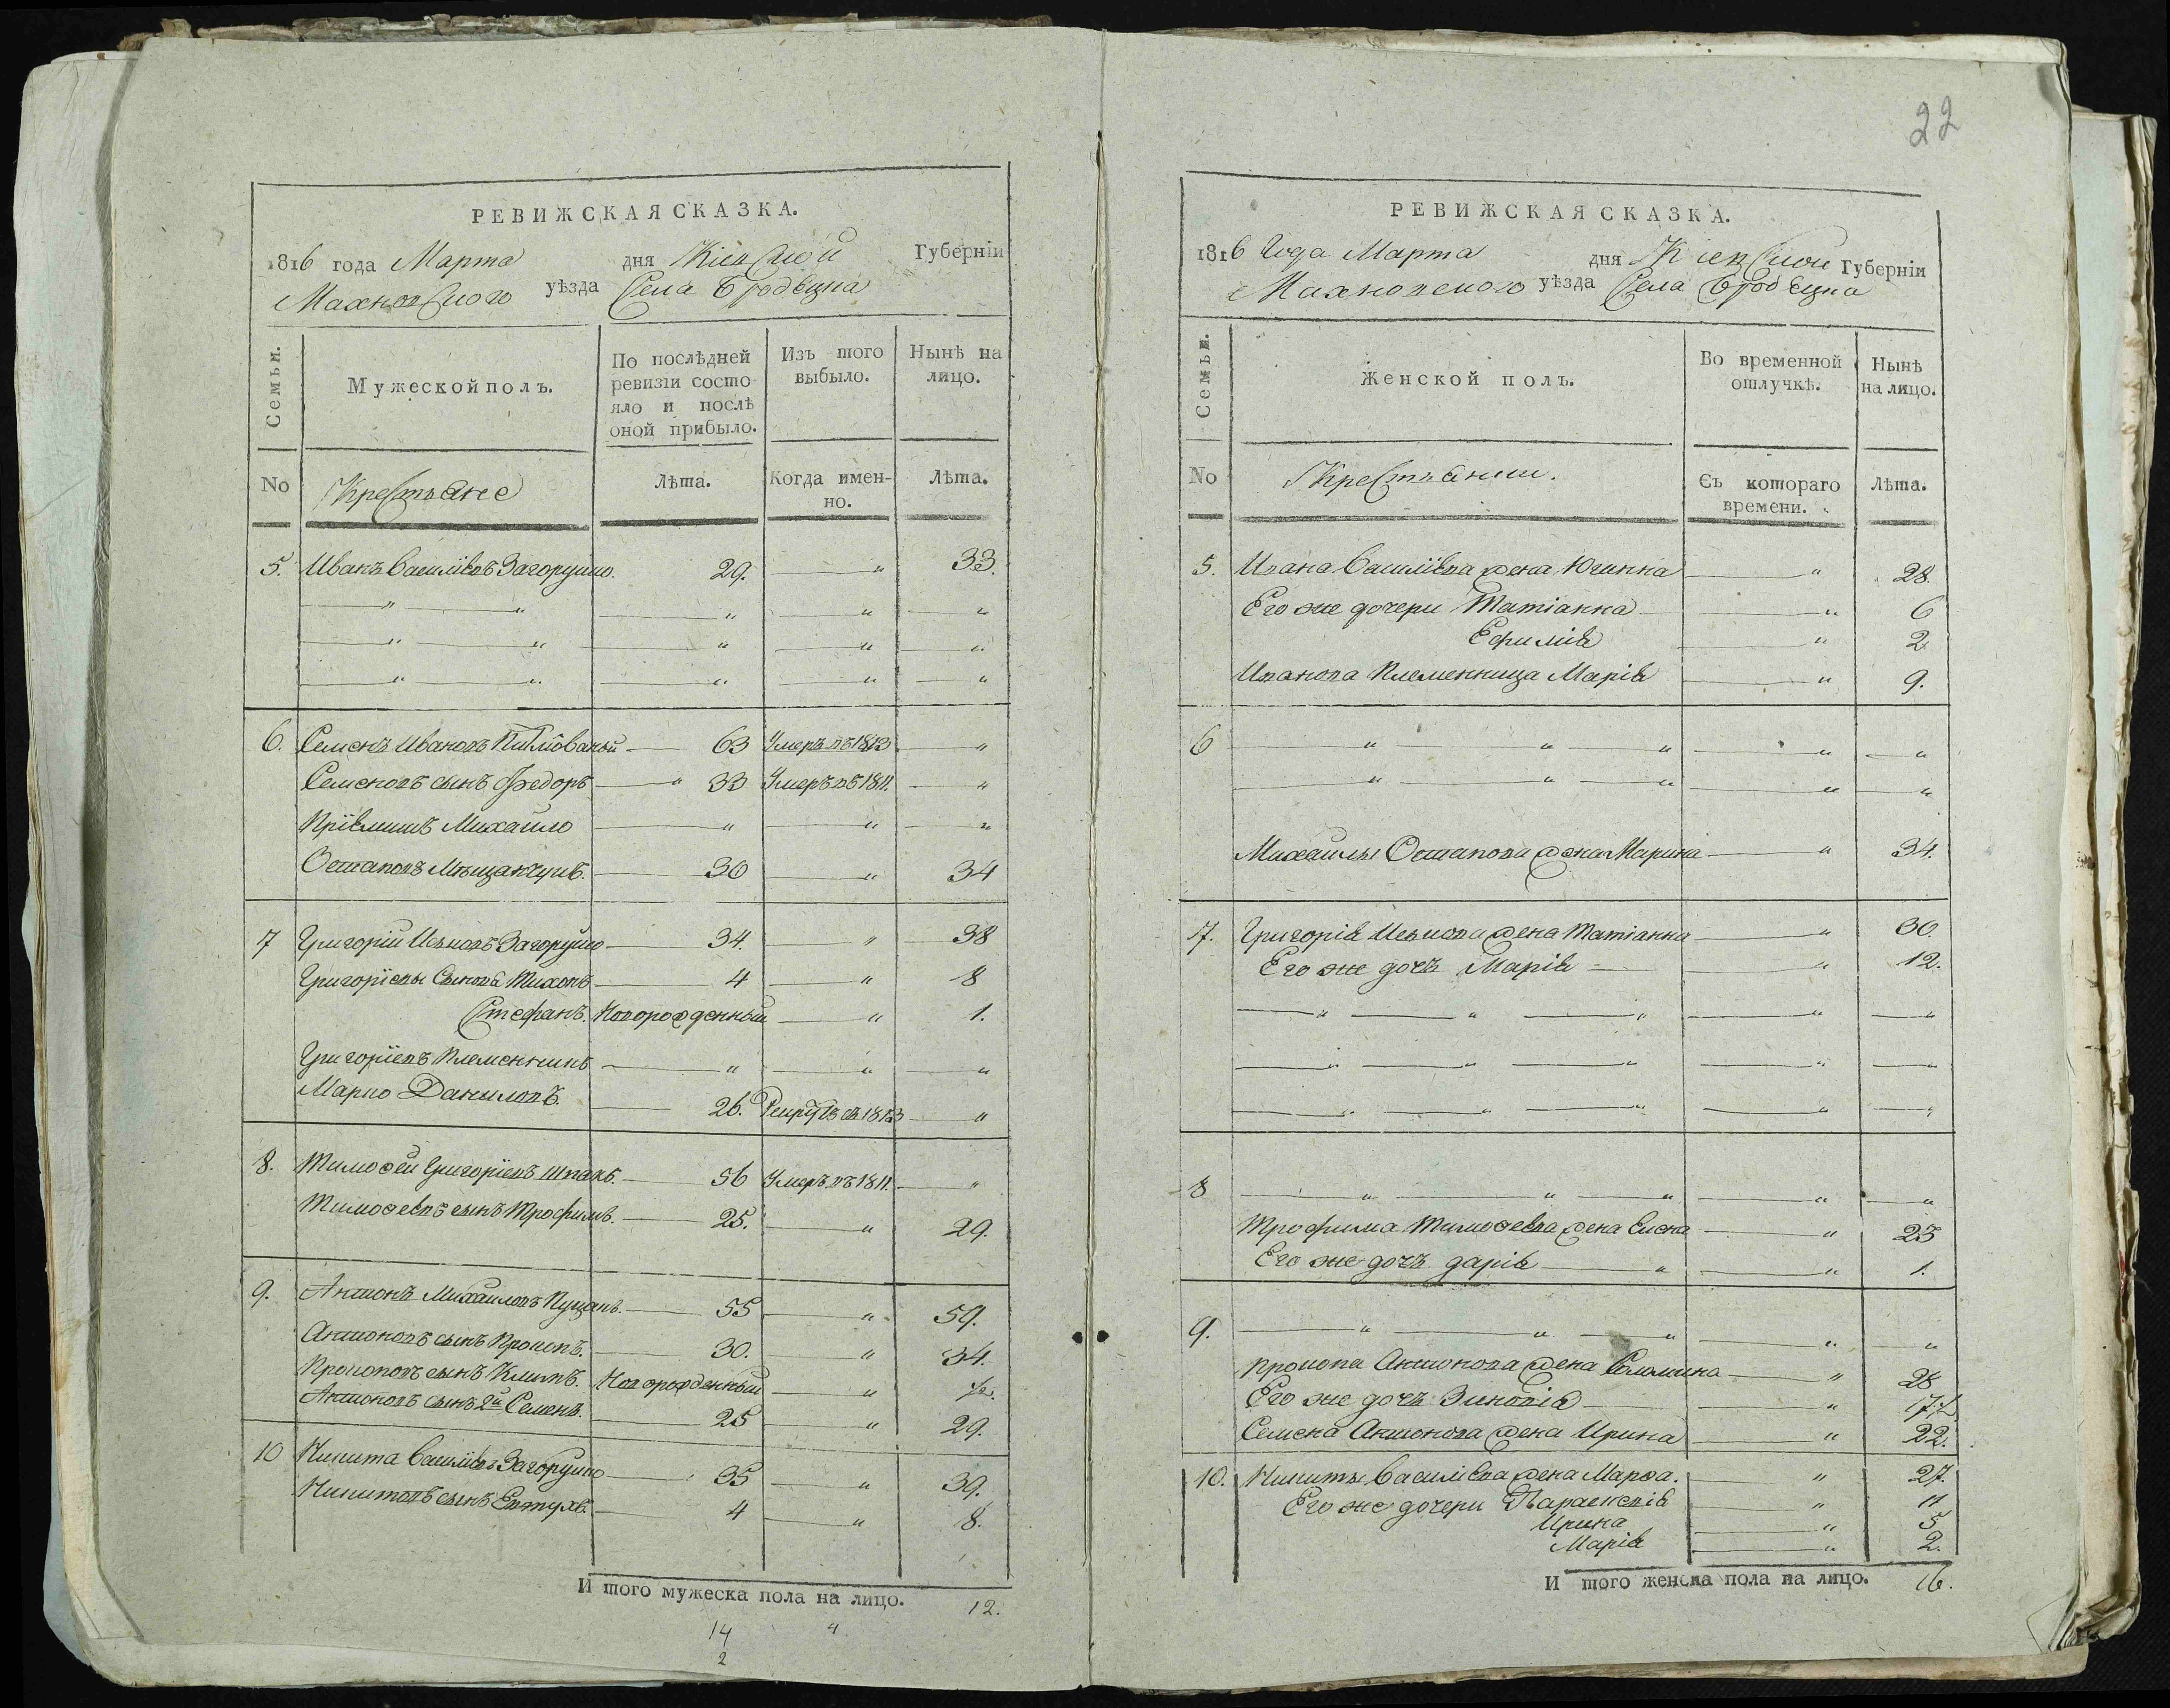 РЕВИЖСКАЯ СКАЗКА.
1816 года Марта дня Кіевской Губерніи
Махновского уѣзда Села Бродецка
Семьи. Мужеской полъ. По послѣдней ревизіи состояло и послѣ оной прибыло. Изъ того выбыло. Нынѣ на лицо.
No Крестьяне Лѣта. Когда именно. Лѣта.
5. Иванъ Василіевъ Загоруйко. 29. " 33.
" " " " "
" " " " "
" " " " "
6. Семенъ Ивановъ 63 Умеръ въ 1813 "
Семеновъ сынъ Федоръ " 33 Умеръ въ 1811. "
Пріемышъ Михайло " " "
Остаповъ Мѣщанчукъ. 30 " 34
7 Григорій Исаковъ Загоруйко 34 " 38
Григоріевы Сыновя Тихонъ 4 " 8
Стефанъ. Новорожденный " 1.
Григоріевъ Племенникъ " " "
Марко Даниловъ. 26. Рекрутъ въ 1813 "
8. Тимофей Григоріевъ Шпакъ. 56 Умеръ въ 1811. "
Тимофеевъ сынъ Трофимъ. 25. " 29.
9. Антонъ Михайловъ Куцакъ. 55 " 59.
Антоновъ сынъ Прокопъ. 30. " 34.
Прокоповъ сынъ Климъ. Новорожденный " ½.
Антоновъ сынъ 2й Семенъ. 25 " 29.
10 Никита Василіевъ Загоруйко 35 " 39.
Никитовъ сынъ Евтухъ. 4 " 8.
И того мужеска пола на лицо. 12.
14 4
2
22
РЕВИЖСКАЯ СКАЗКА.
1816 Года Марта дня Кіевской Губерніи
Махновского уѣзда Села Бродецка
Семьи. Женской полъ. Во временной отлучкѣ. Нынѣ на лицо.
No Крестьянки. Съ котораго времени. Лѣта.
5. Ивана Василіева жена Югинна " 28.
Его же дочери Татіанна " 6
Ефимія " 2
Иванова Племенница Марія " 9.
6 " " " " "
" " " " "
Михайлы Остапова жена Марина " 34.
7. Григорія Исакова жена Татіанна " 30
Его же дочъ Марія " 12.
" " " " "
" " " " "
" " " " "
8 " " " " "
Трофима Тимофеева жена Елена " 23
Его же дочъ дарія " " 1.
9. " " " " "
Прокопа Антонова жена " 28
Его же дочъ Зиновія "
Семена Антонова жена Ирина " 22.
10. Никиты Василіева жена Марфа. " 27.
Его же дочери Параскевія " 11
Ирина " 5
Марія " 2.
И того женска пола на лицо. 16.